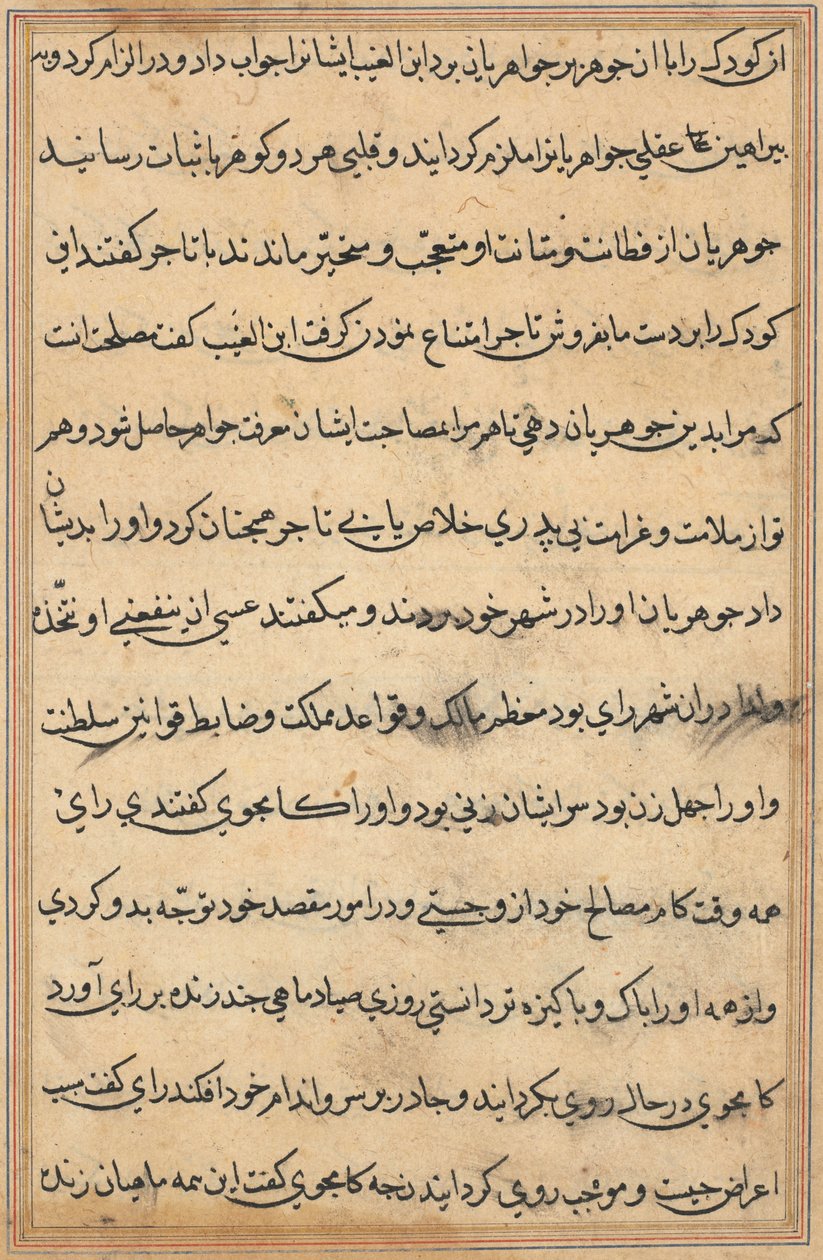 از کودک را با ان جوهر بر جواهریان بود ابن الغیب ایشانرا جواب داد و در الزام کرد و بـ
براهین عقلی جواهریانرا ملزم کردانیند و قلبی هر دو کوهر باثبات رسانیند
جوهریان از فطانت و متانت او متعجّب و متحیّر ماندند با تاجر کفتند این
کودک را بر دست ما بفروش تاجر امتناع نمودن کرفت ابن الغَیب کفت مصلحت انست
که مرا بدین جوهریان دهی تا هم مرا بمصاحبت ایشان معرفت جواهر حاصل شود و هم
تو از ملامت و غرامت بی پدری خلاص یابی تاجر همجنان کرد و او را بدیشان
داد جوهریان او را در شهر خود بردند و میکفتند عسی ان ینفعنی او نتّخذه
ولدا دران شهر رای بود معظم ممالک و قواعد مملکت و ضابط قوانین سلطنت
و او را جهل زن بود سر ایشان زنی بود و او را کامجوی کفتندی رای
همه وقت کام مصالح خود ازو جستی و در امور مقصد خود توجّه بدو کردی
و از همه او را باک و باکیزه تر دانستی روزی صیاد ماهی جند زنده بر رای آورد
کامجوی در حال روی بکردانیند و جادر بر سر و اندام خود افکند رای کفت سبب
اعراض جیست و موجب روی کردانیند نجه کامجوی کفت این همه ماهیان زنده